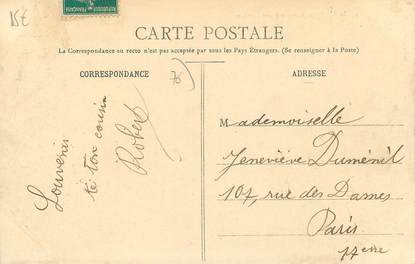 15€
CARTE POSTALE
La Correspondance au recto n'est pas acceptée par tous les Pays Étrangers. (Se renseigner à la Poste)
CORRESPONDANCE
Souvenir
ton cousin
Robert
ADRESSE
Mademoiselle
Geneviève Duménil
107, rue des Dames
Paris
17eme